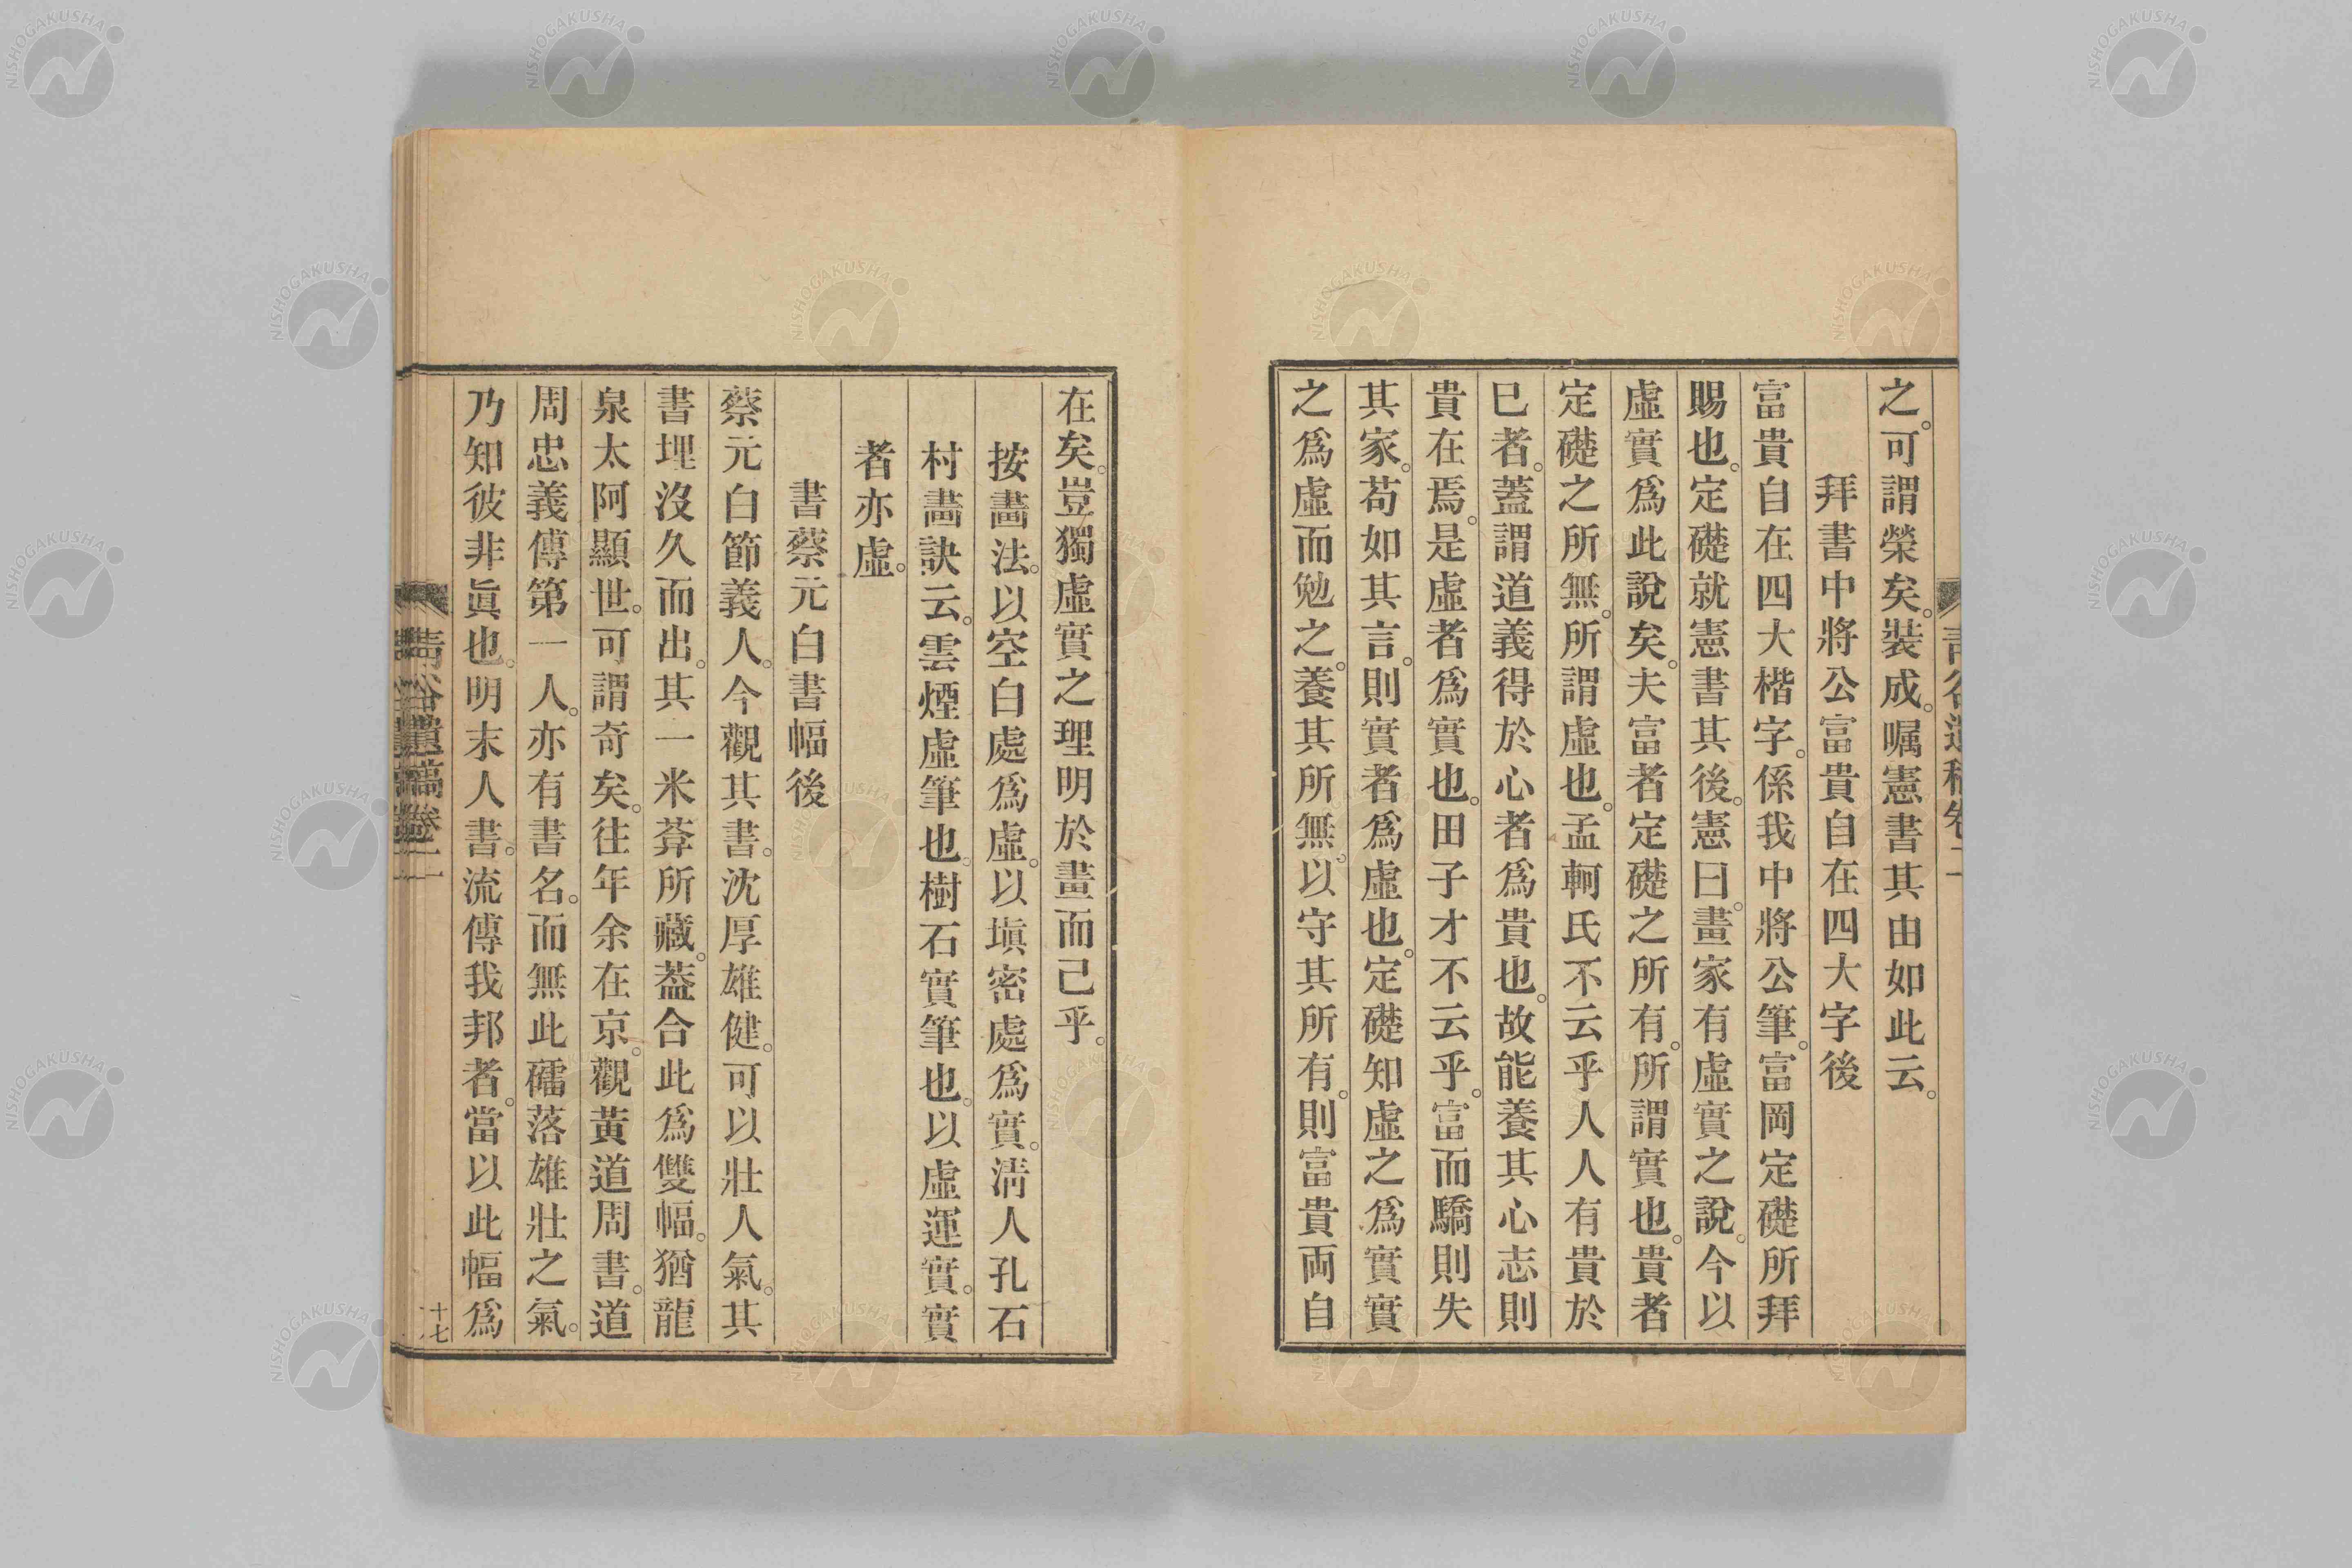 之。可謂榮矣。裝成。囑憲書其由如此云。
拜書中將公富貴自在四大字後
富貴自在四大楷字。係我中將公筆。富岡定礎所拜
賜也。定礎就憲書其後。憲曰。畫家有虛實之說。今以
虛實爲此說矣。夫富者定礎之所有。所謂實也。貴者
定礎之所無。所謂虛也。孟軻氏不云乎人人有貴於
已者。蓋謂道義得於心者爲貴也。故能養其心志則
貴在焉。是虛者爲實也。田子才不云乎。富而驕則失
其家。苟如其言。則實者爲虛也。定礎知虛之爲實實
之爲虛而勉之。養其所無。以守其所有。則富貴両自
在矣。豈獨虛實之理明於畫而已乎。
按畵法。以空白處爲虛。以塡密處爲實。淸人孔石
村畵訣云。雲煙虛筆也。樹石實筆也。以虛運實。實
者亦虛。
書蔡元白書幅後
蔡元白節義人。今觀其書。沈厚雄健。可以壯人氣。其
書埋沒久而出。其一米莽所藏。葢合此爲雙幅。猶龍
泉太阿顯世。可謂奇矣。往年余在京。觀黃道周書。道
周忠義傳第一人。亦有書名。而無此礌落雄壯之氣。
乃知彼非眞也。明末人書。流傳我邦者。當以此幅爲
十七
NISHOGAKUSHA